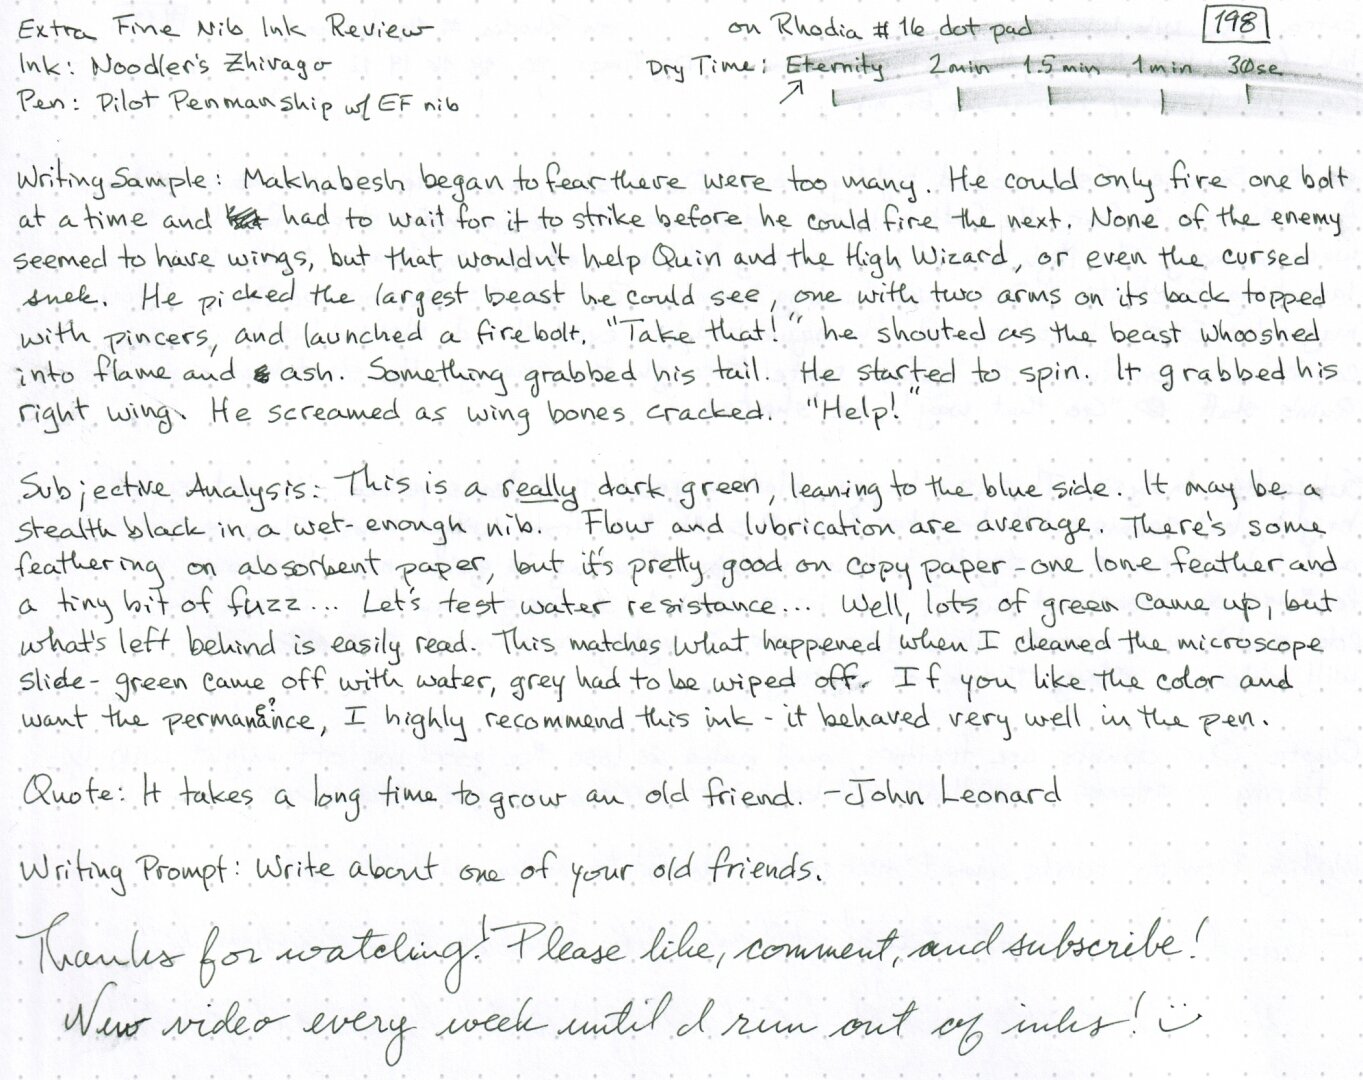 Extra Fine Nib Ink Review
on Rhodia #16 dot pad
198
Ink: Noodler's Zhivago
Dry Time: Eternity 2min 1.5min 1min 30se
Pen: Pilot Penmanship w/ EF nib
Writing Sample: Makhabesh began to fear there were too many. He could only fire one bolt
at a time and had to wait for it to strike before he could fire the next. None of the enemy
seemed to have wings, but that wouldn't help Quin and the High Wizard, or even the cursed
snek. He picked the largest beast he could see, one with two arms on its back topped
with pincers, and launched a firebolt. "Take that!" he shouted as the beast whooshed
into flame and ash. Something grabbed his tail. He started to spin. It grabbed his
right wing. He screamed as wing bones cracked. "Help!"
Subjective Analysis: This is a really dark green, leaning to the blue side. It may be a
stealth black in a wet-enough nib. Flow and lubrication are average. There's some
feathering on absorbent paper, but it's pretty good on copy paper - one lone feather and
a tiny bit of fuzz... Let's test water resistance... Well, lots of green came up, but
what's left behind is easily read. This matches what happened when I cleaned the microscope
slide - green came off with water, grey had to be wiped off. If you like the color and
e?
want the permanance, I highly recommend this ink - it behaved very well in the pen.
Quote: It takes a long time to grow an old friend. - John Leonard
Writing Prompt: Write about one of your old friends.
Thanks for watching! Please like, comment, and subscribe!
New video every week until I run out of inks! :)